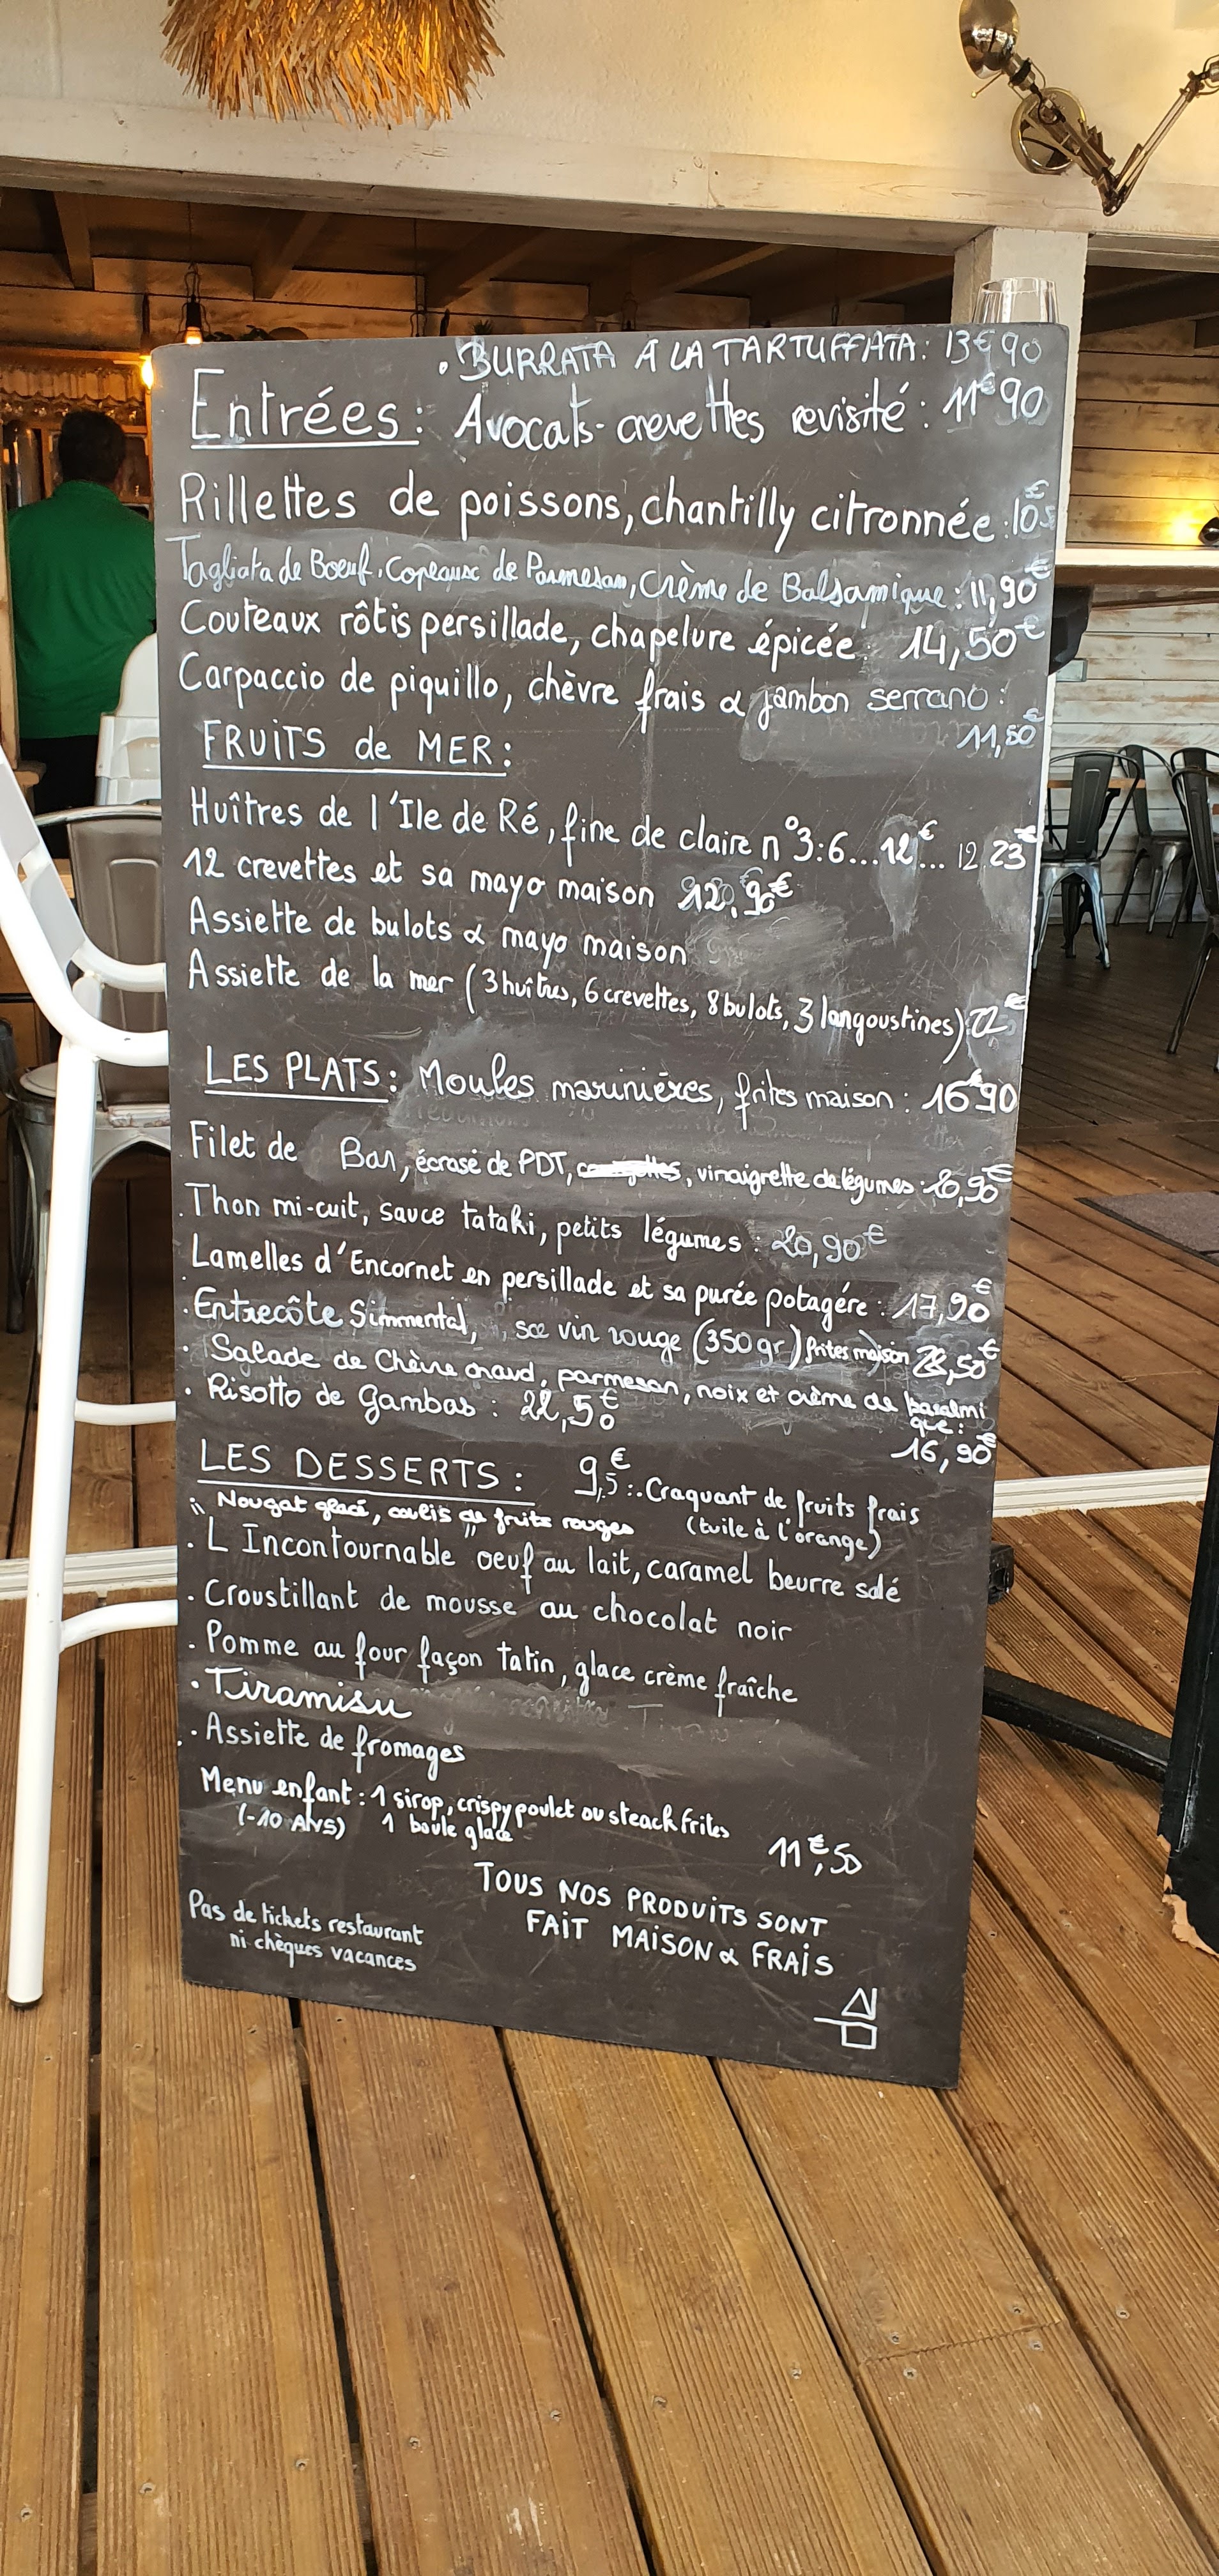 . BURRATA A LA TARTUFFATA: 13€90
Entrées: Avocats-crevettes revisité: 11€90
Rillettes de poissons, chantilly citronnée: 10€5
Tagliata de Boeuf, Copeaux de Parmesan, Crème de Balsamique: 11,90€
Couteaux rôtis persillade, chapelure épicée: 14,50€
Carpaccio de piquillo, chèvre frais & jambon serrano:
11,50€
FRUITS de MER:
Huîtres de l'Ile de Ré, fine de claire n°3: 6...12€... 12 23€
12 crevettes et sa mayo maison 12,90€
Assiette de bulots & mayo maison
Assiette de la mer (3 huîtres, 6 crevettes, 8 bulots, 3 langoustines) 22€
LES PLATS: Moules marinières, frites maison: 16€90
Filet de Bar, écrasé de PDT, , vinaigrette de légumes: 20,90€
Thon mi-cuit, sauce tataki, petits légumes: 20,90€
Lamelles d'Encornet en persillade et sa purée potagére: 17,90€
. Entrecôte Simmental, , sce vin rouge (350gr) frites maison ,50€
. Salade de Chèvre chaud, parmesan, noix et crème de basalmi
que:
16,90€
. Risotto de Gambas: 22,50€
LES DESSERTS: 9,5€ :. Craquant de fruits frais
(tuile à l'orange)
" Nougat glacé, coulis de fruits rouges "
. L Incontournable oeuf au lait, caramel beurre salé
. Croustillant de mousse au chocolat noir
. Pomme au four façon tatin, glace crème fraîche
. Tiramisu
. Assiette de fromages
Menu enfant: 1 sirop, crispy poulet ou steack frites
(-10 ANS) 1 boule glace
11€,50
TOUS NOS PRODUITS SONT
FAIT MAISON & FRAIS
Pas de tickets restaurant
ni chèques vacances